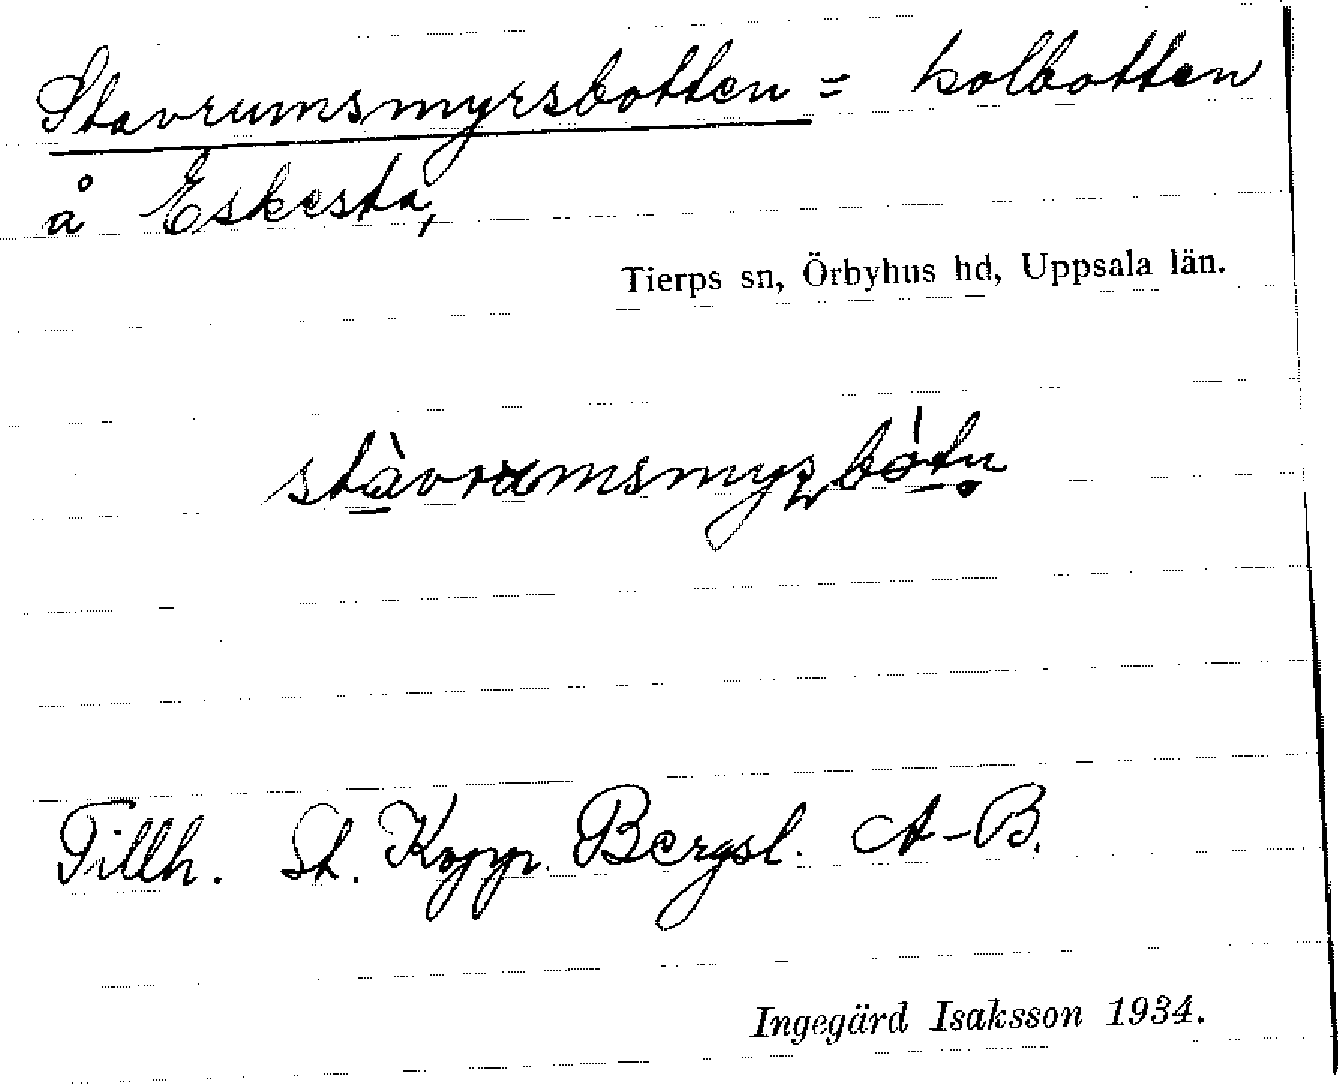 Stavrumsmyrsbotten = kolbotten
å Eskesta,
Tierps sn, Örbyhus hd, Uppsala län.
stàvrumsmyʂbótn̥
Tillh. St. Kopp. Bergsl. A-B.
Ingegärd Isaksson 1934.